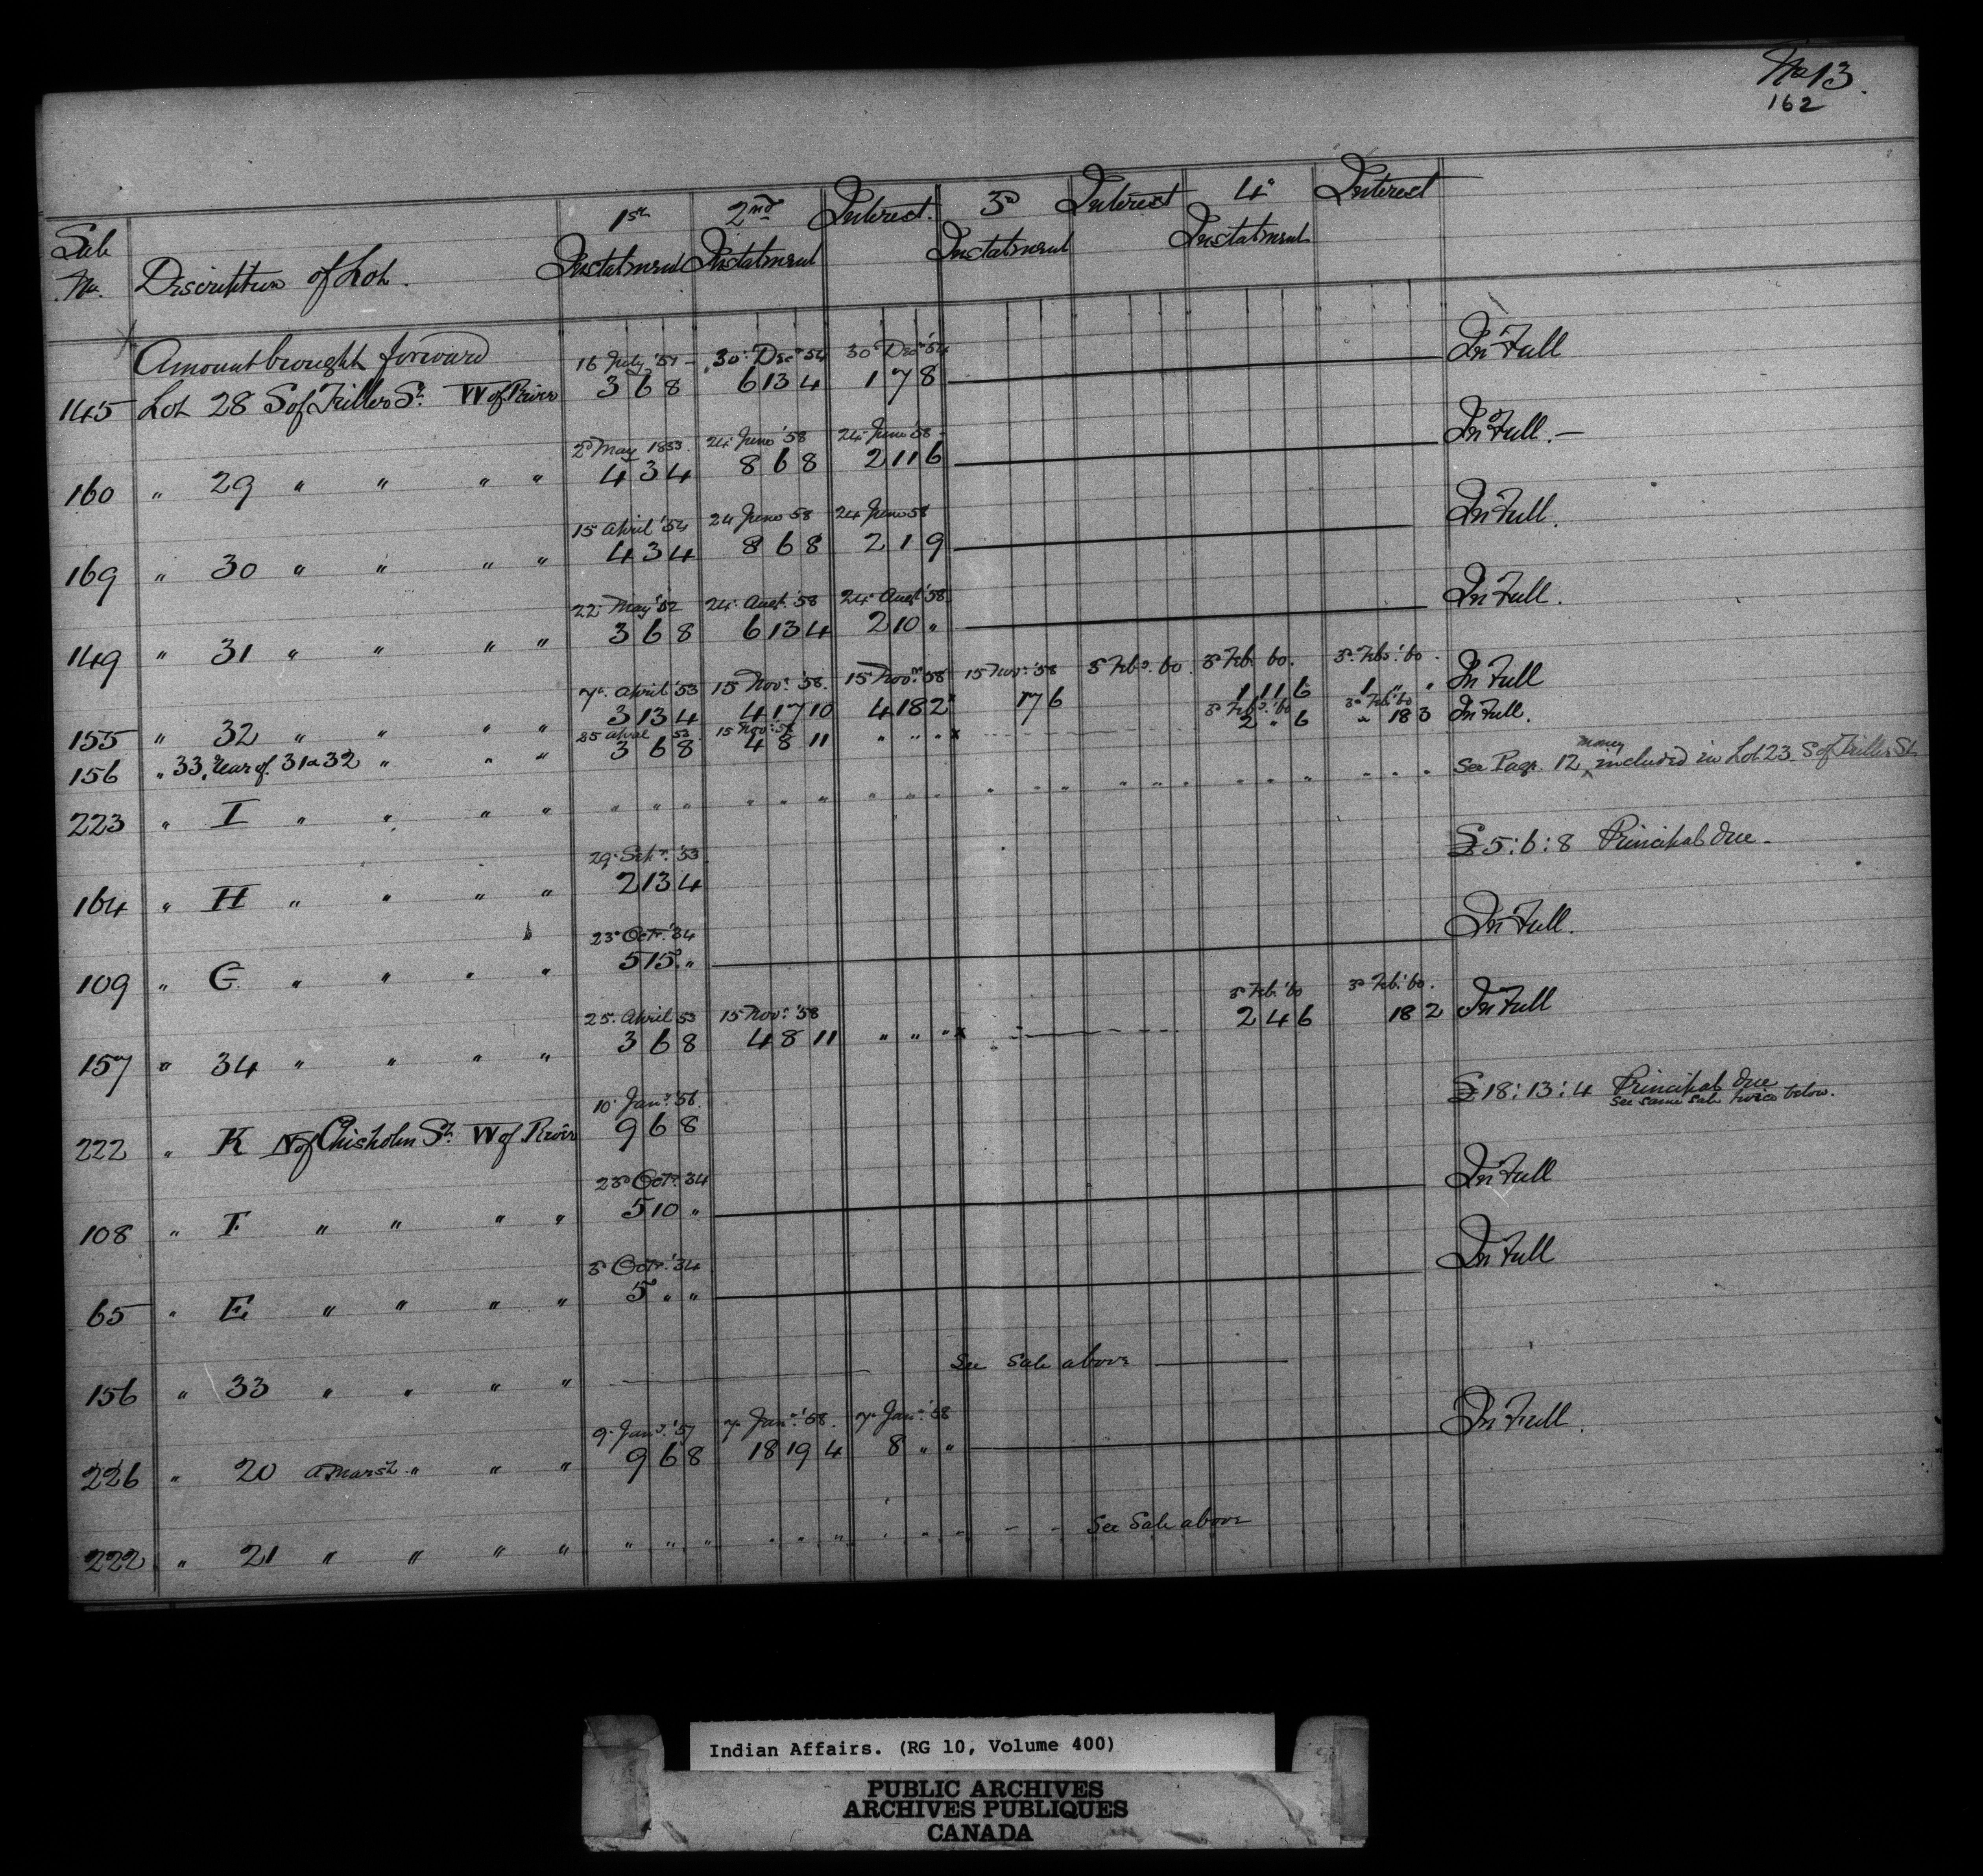 No 13.
162
Sale No. Discription of Lot. 1st Instalment 2nd Instalment Interest. 3d Instalment Interest 4th Instalment Interest
Amount brought forward
16 July '51 30th Decr 54 30th Decr '54
145 Lot 28 S of Triller St. W of River 3 6 8 6 13 4 1 7 8 In Full
2d May 1853. 24th June '58 24th June '58
160 " 29 " " " " 4 3 4 8 6 8 2 11 6 In Full.
15th April '54 24 June 58 24 June 58
169 " 30 " " " " 4 3 4 8 6 8 2 1 9 In Full.
22d May '52 24th Augt. '58 24th Augt '58
149 " 31 " " " " 3 6 8 6 13 4 2 10 " In Full.
7th April '53 15 Novr. '58. 15 Novr. '58 15 Novr. '58 3d Feby. 60 3d Feb. 60. 3d Feby. '60.
155 " 32 " " " " 3 13 4 4 17 10 4 18 2 x 17 6 1 11 6 1 " " In Full
25 April 53 15 Novr: 58 3d Feby. '60 3d Feb. '60
156 " 33, Rear of 31 & 32 " " " 3 6 8 4 8 11 " " " x 2 " 6 " 18 3 In Full.
223 " I " " " " " " " " " " " " " " " " " " " " " " " " " See Page 12 money included in Lot 23 S of Triller St
29th Sepr. '53
164 " H " " " " 2 13 4 £5:6:8 Principal due
23d Octr. '34
109 " G " " " " 5 15 " In Full.
25th April 53 15 Novr. '58 3d Feb. '60 3d Feb. '60.
157 " 34 " " " " 3 6 8 4 8 11 " " " x 2 4 6 18 2 In Full
10th Jany. '56.
222 " K N of Chisholm St. W of River 9 6 8 £18:13:4 Principal due
See same sale No. below.
23d Octr. 34
108 " F " " " " 5 10 " In Full
3d Octr. '34
65 " E " " " " 5 " " In Full
156 " 33 " " " " See Sale above
9th Jany. '57 7th Jany. '58. 7th Jany. '58
226 " 20 a Marsh " " " 9 6 8 18 19 4 8 " " In Full.
222 " 21 " " " " " " " " " " " " " See Sale above
Indian Affairs. (RG 10, Volume 400)
PUBLIC ARCHIVES
ARCHIVES PUBLIQUES
CANADA